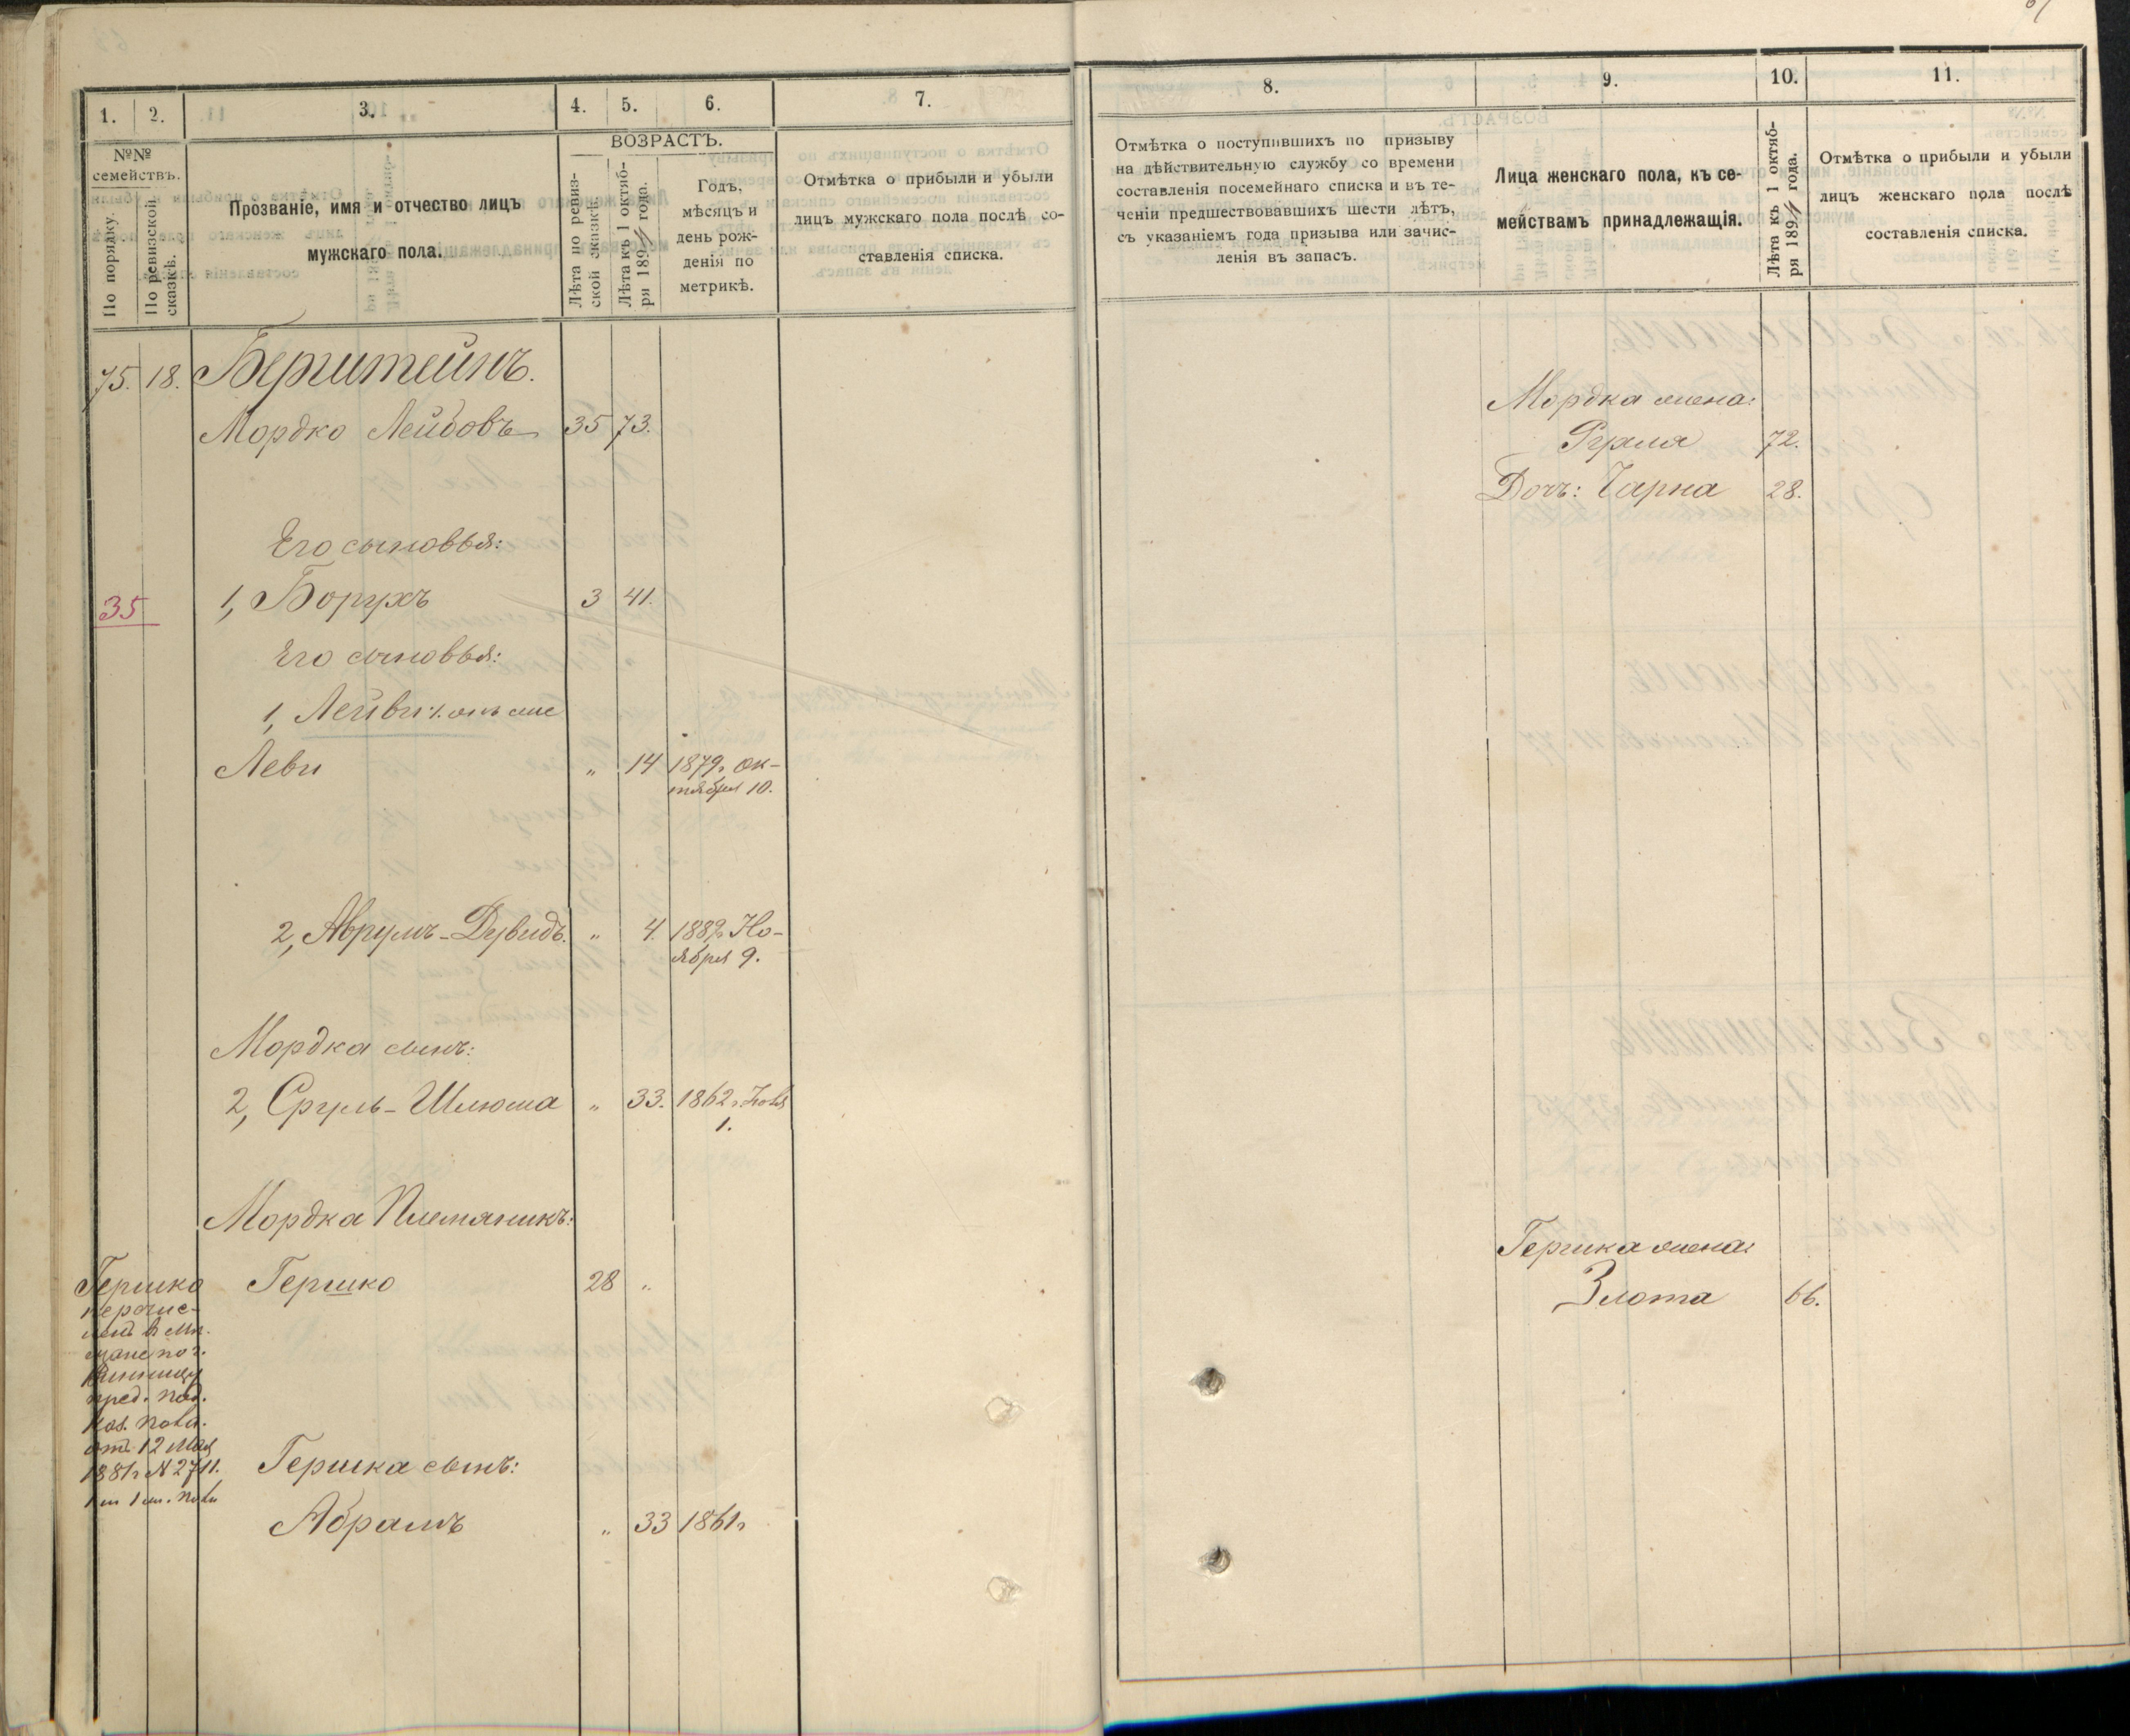 1.
2.
3.
4.
5.
6.
7.
№№
семействъ.
По порядку.
По ревизской
сказкѣ.
Прозваніе, имя и отчество лицъ
мужскаго пола.
ВОЗРАСТЪ.
Лѣта по ревиз-
ской сказкѣ.
Лѣта къ 1 октяб-
ря 1894 года.
Годъ,
мѣсяцъ и
день рож-
денія по
метрикѣ.
Отмѣтка о прибыли и убыли
лицъ мужскаго пола послѣ со-
ставленія списка.
75. 18. Бернштейнъ.
Мордко Лейбовъ 35 73.
Его сыновья:
35 1, Борухъ 3 41.
Его сыновья:
1, Лейви онъ же
Леви " 14 1879г. Ок-
тября 10.
2, Аврумъ-Дувидъ. " 4. 1889г. Но-
ября 9.
Мордка сынъ:
2, Сруль-Шлюма " 33. 1862г.
1.
Мордка Племяникъ:
Гершко 28 "
Гершко
перечис-
ленъ в мѣ-
щане по г.
Винницу
пред. Под.
Каз. Пала.
отъ 12 Мая
1881г. № 2711.
Гершка сынъ:
Абрамъ " 33 1861г.
8.
9.
10.
11.
Отмѣтка о поступившихъ по призыву
на дѣйствительную службу со времени
составленія посемейнаго списка и въ те-
ченіи предшествовавшихъ шести лѣтъ,
съ указаніемъ года призыва или зачис-
ленія въ запасъ.
Лица женскаго пола, къ се-
мействамъ принадлежащія.
Лѣта къ 1 октяб-
ря 1894 года.
Отмѣтка о прибыли и убыли
лицъ женскаго пола послѣ
составленія списка.
Мордка жена:
Рухля 72.
Дочь: Чарна 28.
Гершка жена:
Злота 66.